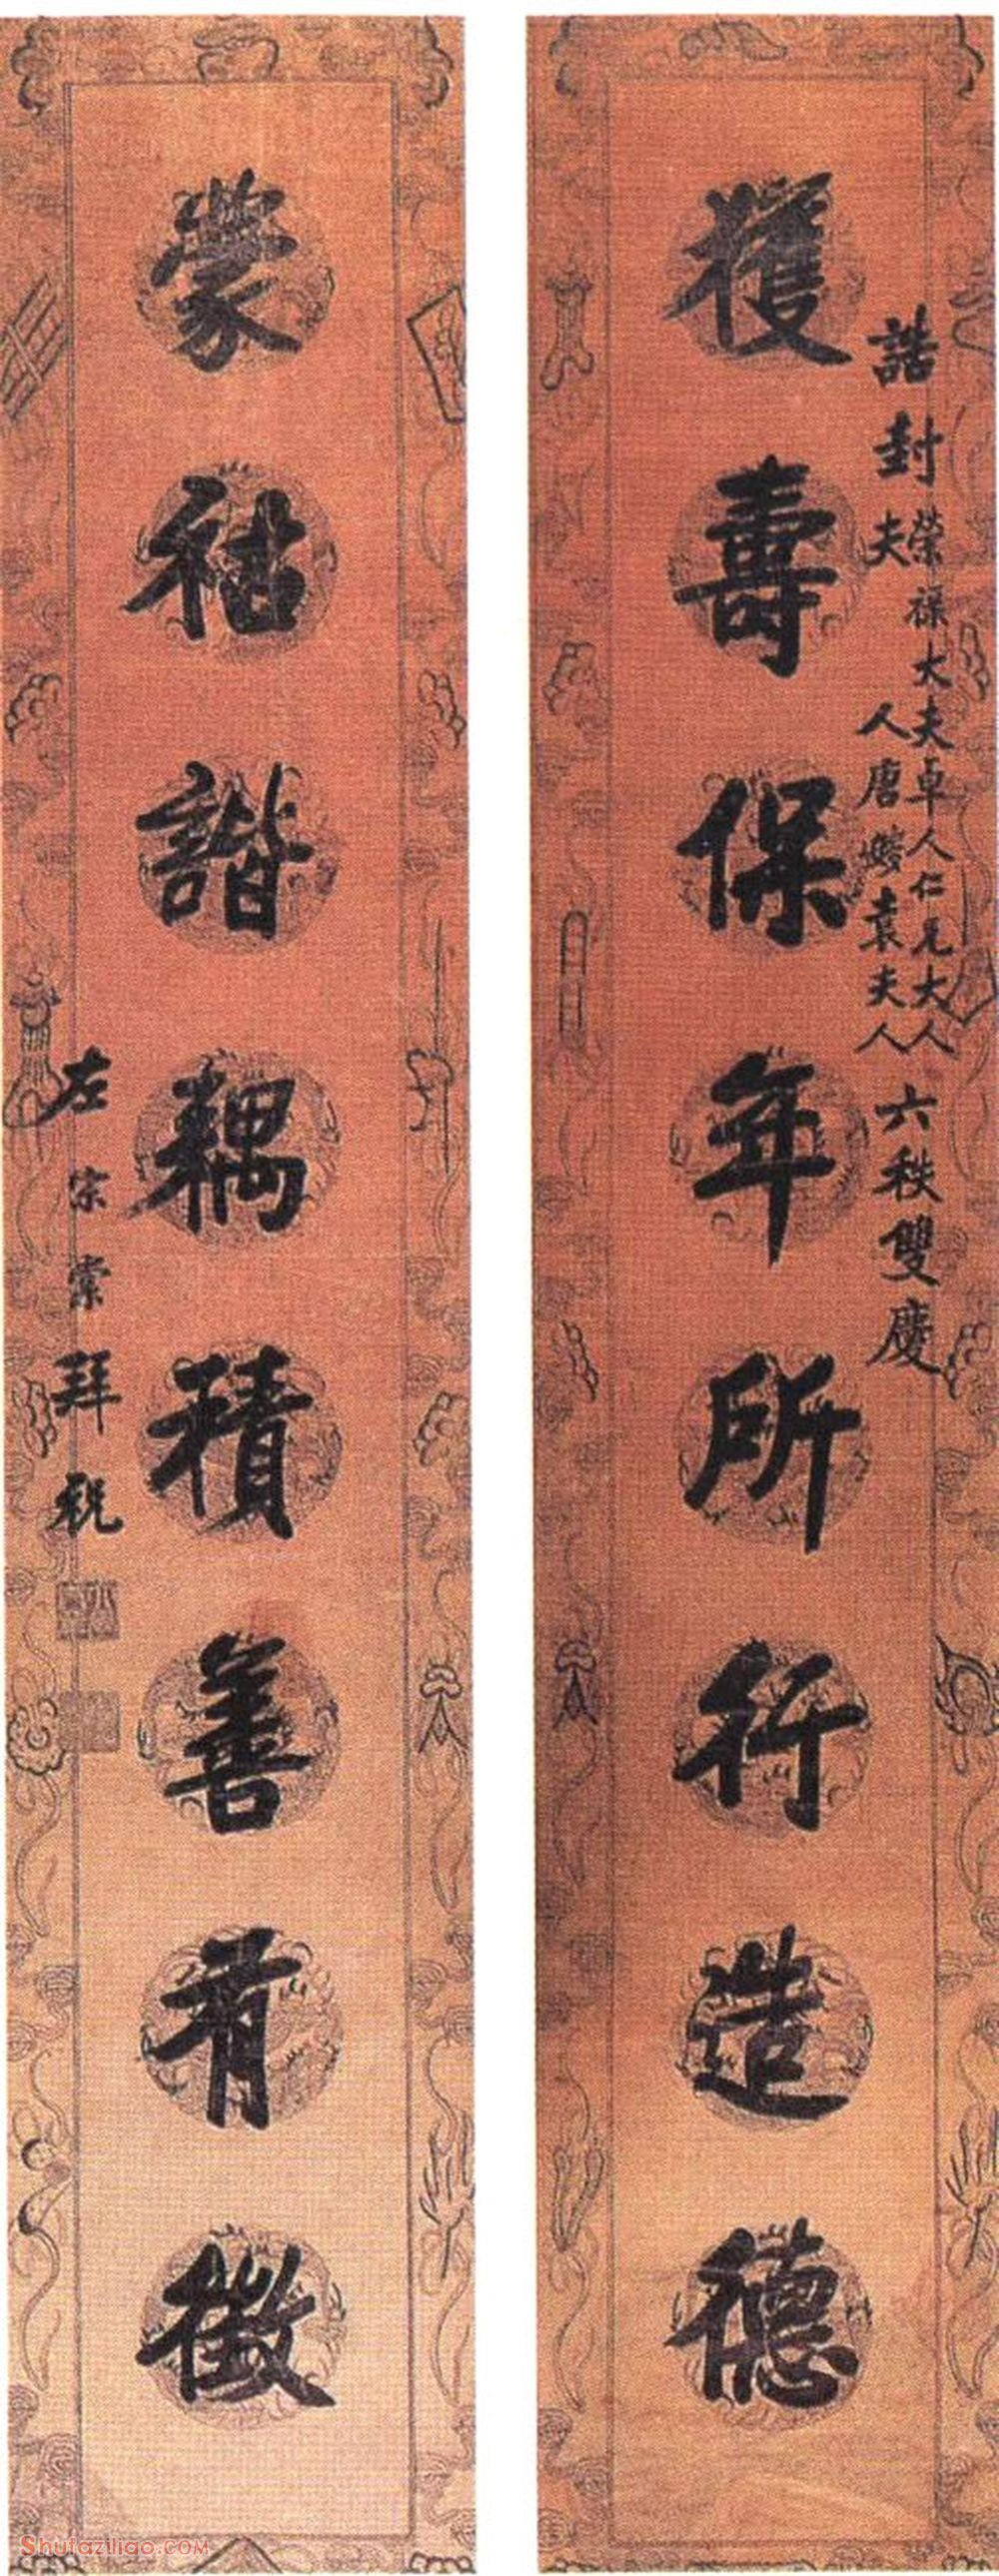 誥封榮祿大夫卓人仁兄大人
夫人唐嫂袁夫人
六秩雙慶
獲壽保年所行造德
蒙祜諧耦積善有徵
左宗棠拜祝
Shufaziliao.COM